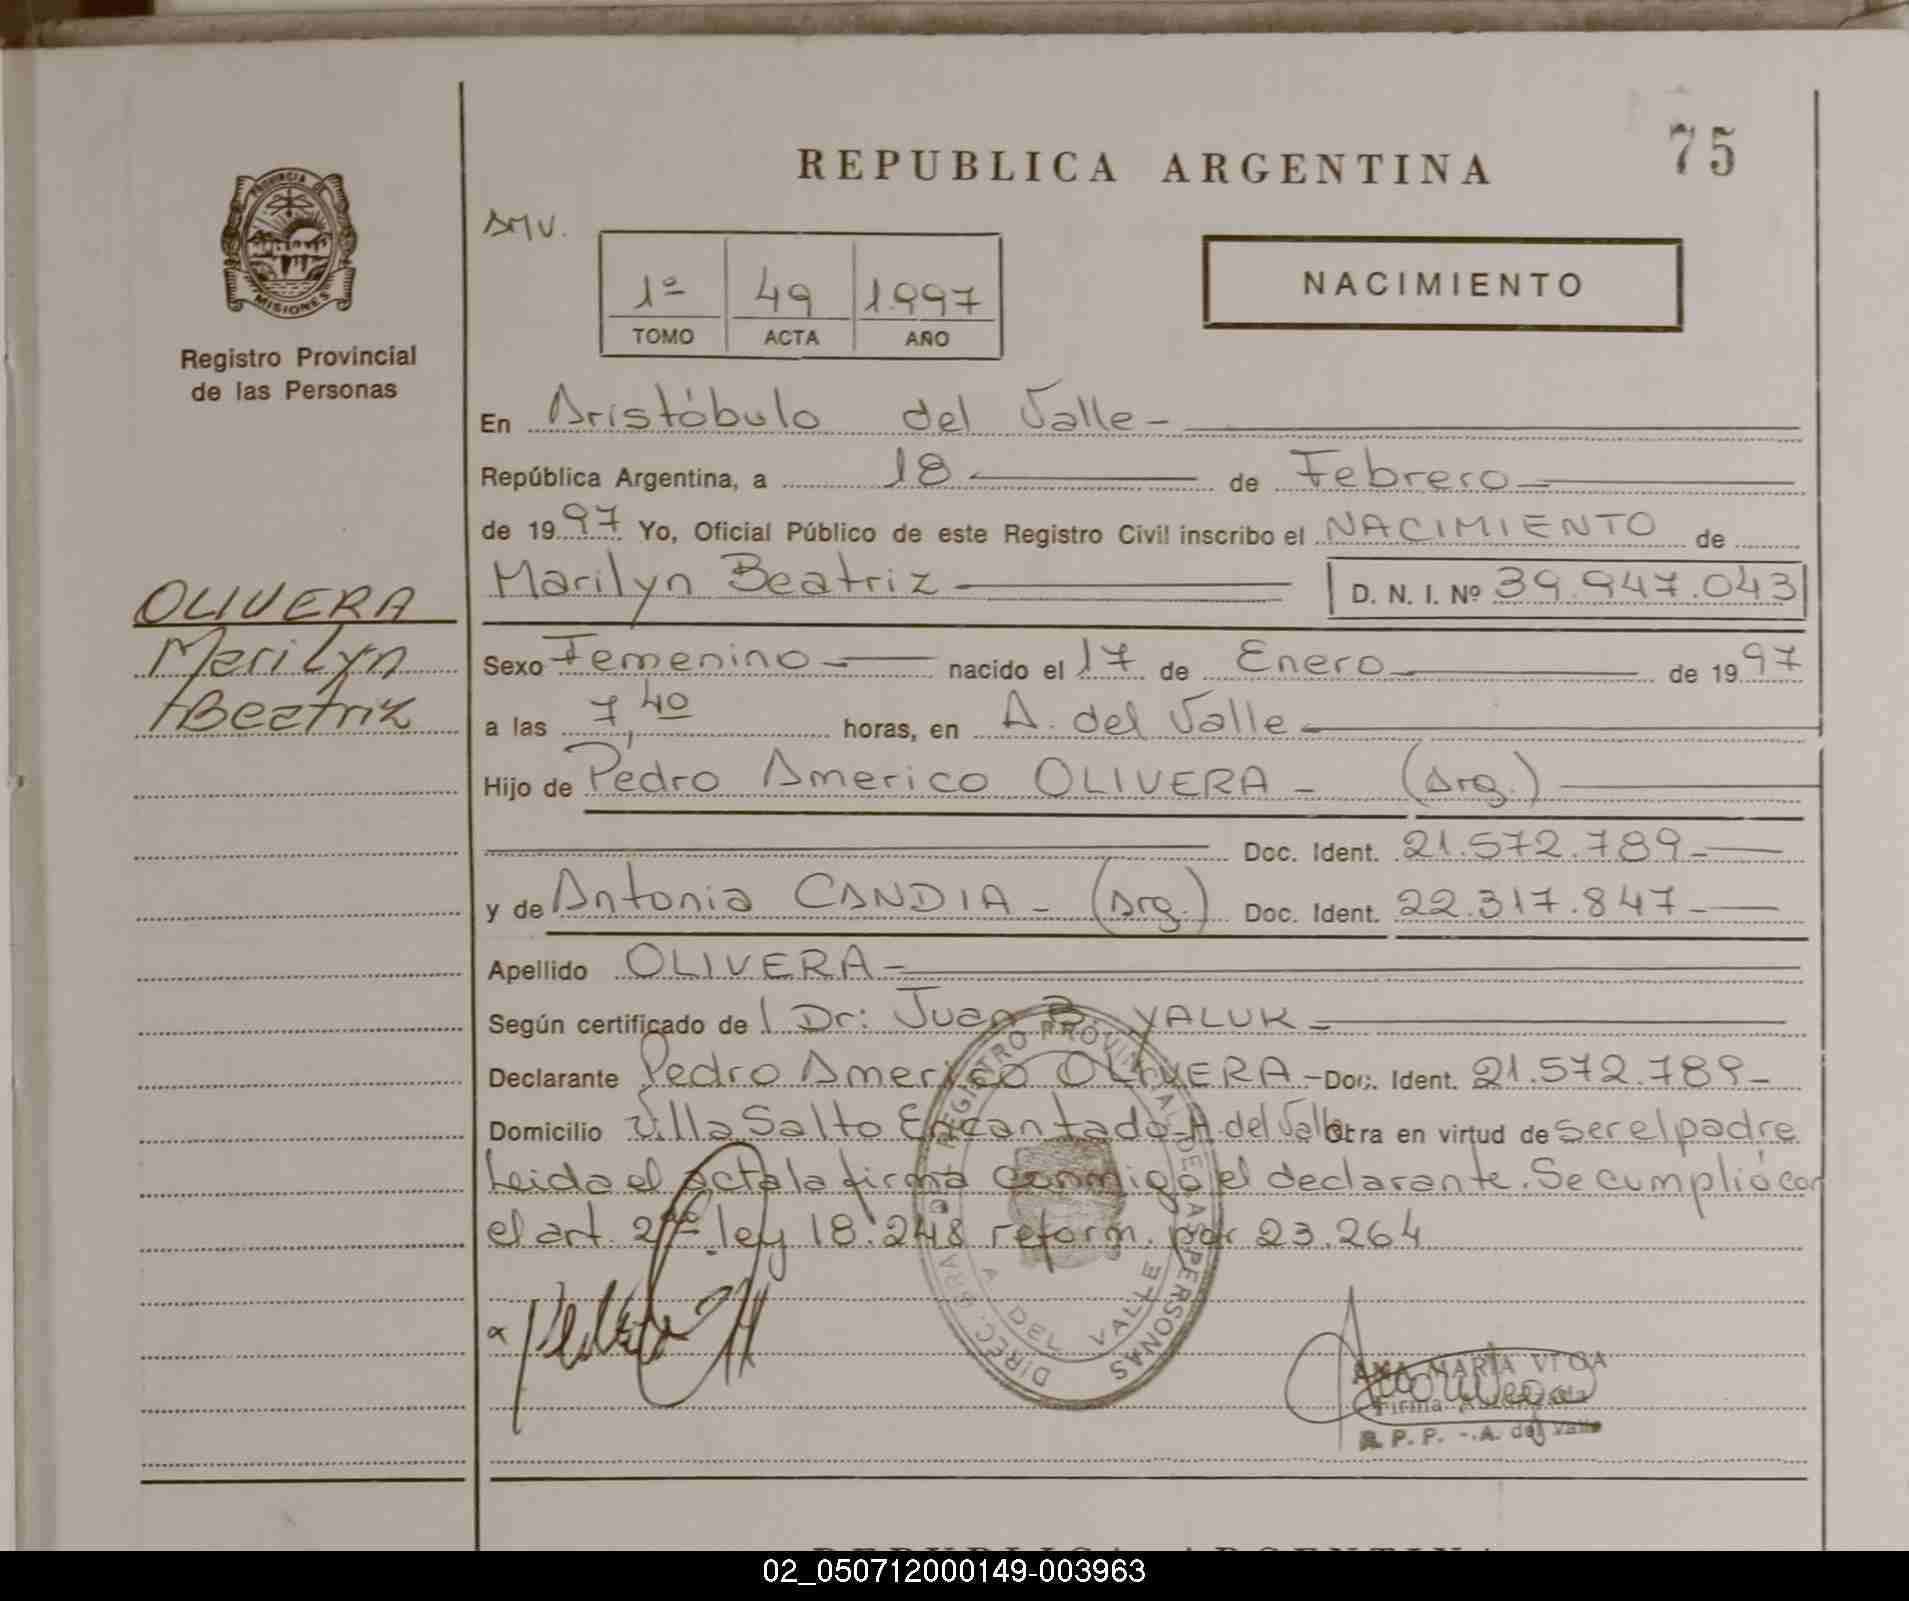 75
REPUBLICA ARGENTINA
PROVINCIA DE
MISIONES
Registro Provincial
de las Personas
AMV.
1º 49 1.997
TOMO ACTA AÑO
NACIMIENTO
En Aristóbulo del Valle-
República Argentina, a 18 de Febrero
de 1997 Yo, Oficial Público de este Registro Civil inscribo el NACIMIENTO de
Marilyn Beatriz D. N. I. Nº 39.947.043
OLIVERA
Marilyn
Beatriz
Sexo Femenino nacido el 17 de Enero de 1997
a las 7,40 horas, en A. del Valle
Hijo de Pedro Americo OLIVERA - (Arg.)
Doc. Ident. 21.572.789-
y de Antonia CANDIA - (Arg.) Doc. Ident. 22.317.847-
Apellido OLIVERA-
Según certificado de Dr: Juan B. YALUK-
Declarante Pedro Americo OLIVERA - Doc. Ident. 21.572.789-
Domicilio Villa Salto Encantado-A. del Valle Obra en virtud de ser el padre
Leida el acta la firma conmigo el declarante. Se cumplió con
el art. 2º ley 18.248 reform. por 23.264
DIREC. GRAL. REGISTRO PROVINCIAL DE LAS PERSONAS
A DEL VALLE
ANA MARIA VEGA
Firma Autorizada
R. P. P. - A. del Valle
REPUBLICA ARGENTINA
02_050712000149-003963